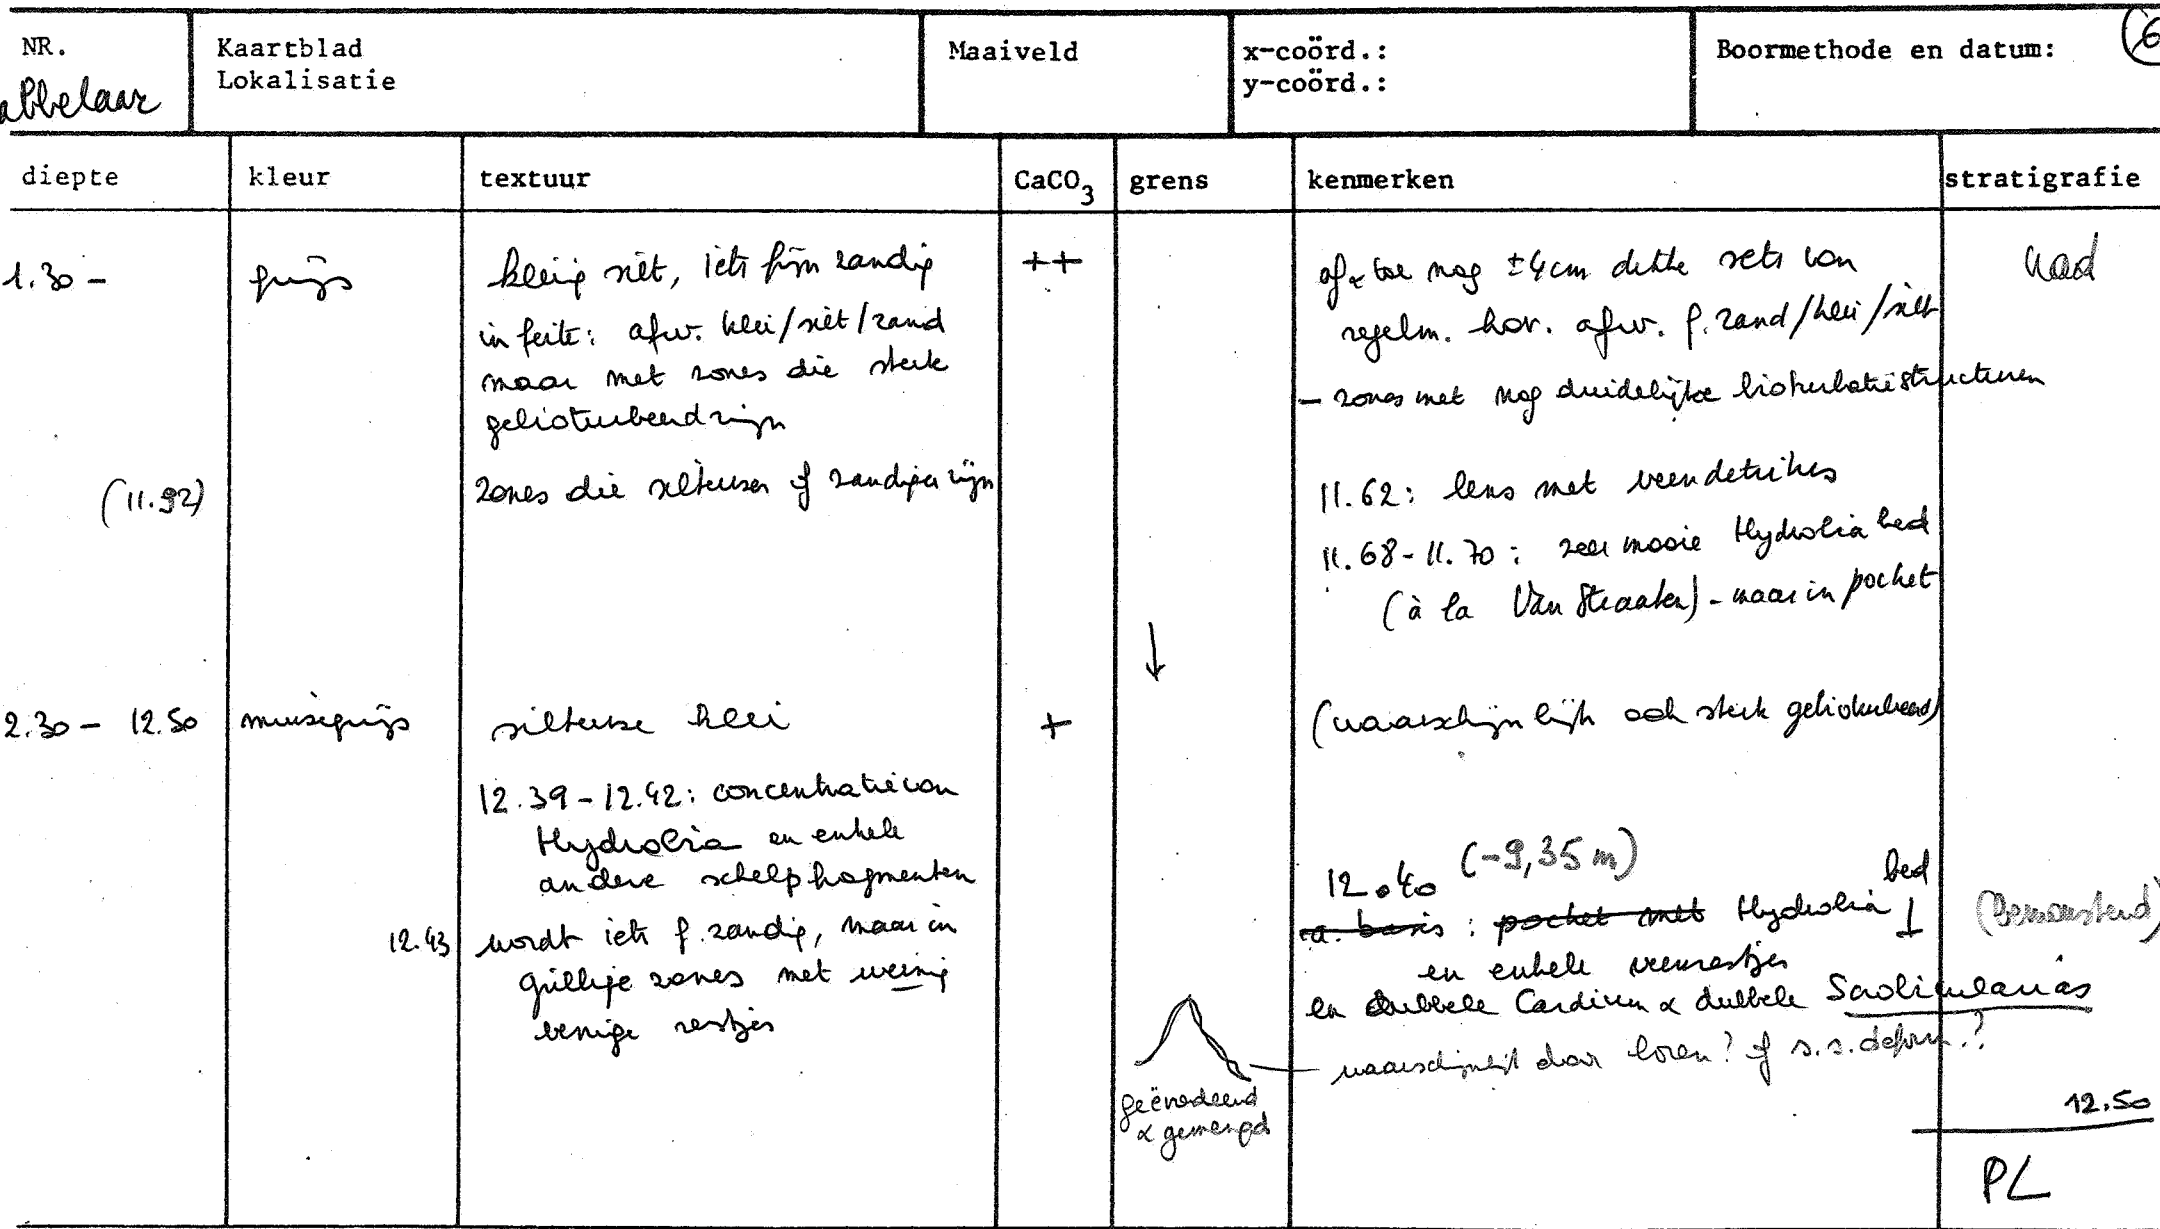 NR.
abbelaar
Kaartblad
Lokalisatie
Maaiveld
x-coörd.:
y-coörd.:
Boormethode en datum:
6
diepte
kleur
textuur
CaCO3
grens
kenmerken
stratigrafie
1.30 -
(11.92)
grijs
kleiig silt, iets fijn zandig
in feite: afw. klei/silt/zand
maar met zones die sterk
gebioturbeerd zijn
zones die silteuser of zandiger zijn
++
af & toe nog ±4cm dikke sets van
regelm. hor. afw. f. zand/klei/silt
- zones met nog duidelijke bioturbatiestructuren
11.62: lens met veendetritus
11.68-11.70: zeer mooie Hydrobia bed
(à la Van Straaten) - maar in pocket
wad
↓
2.30 - 12.50
muisgrijs
silteuse klei
+
(waarschijnlijk ook sterk gebioturbeerd)
12.39-12.42: concentratie van
Hydrobia en enkele
andere schelpfragmenten
12.43 wordt iets f. zandig, maar in
grillige zones met weinig
venige restjes
12.40 (-9,35 m)
a. basis : pocket met Hydrobia bed
en enkele veenrestjes
en dubbele Cardium & dubbele Scrobicularias
waarschijnlijk door boren? of s.s. deform.?
geërodeerd
& gemengd
(bemonsterd)
12.50
PL